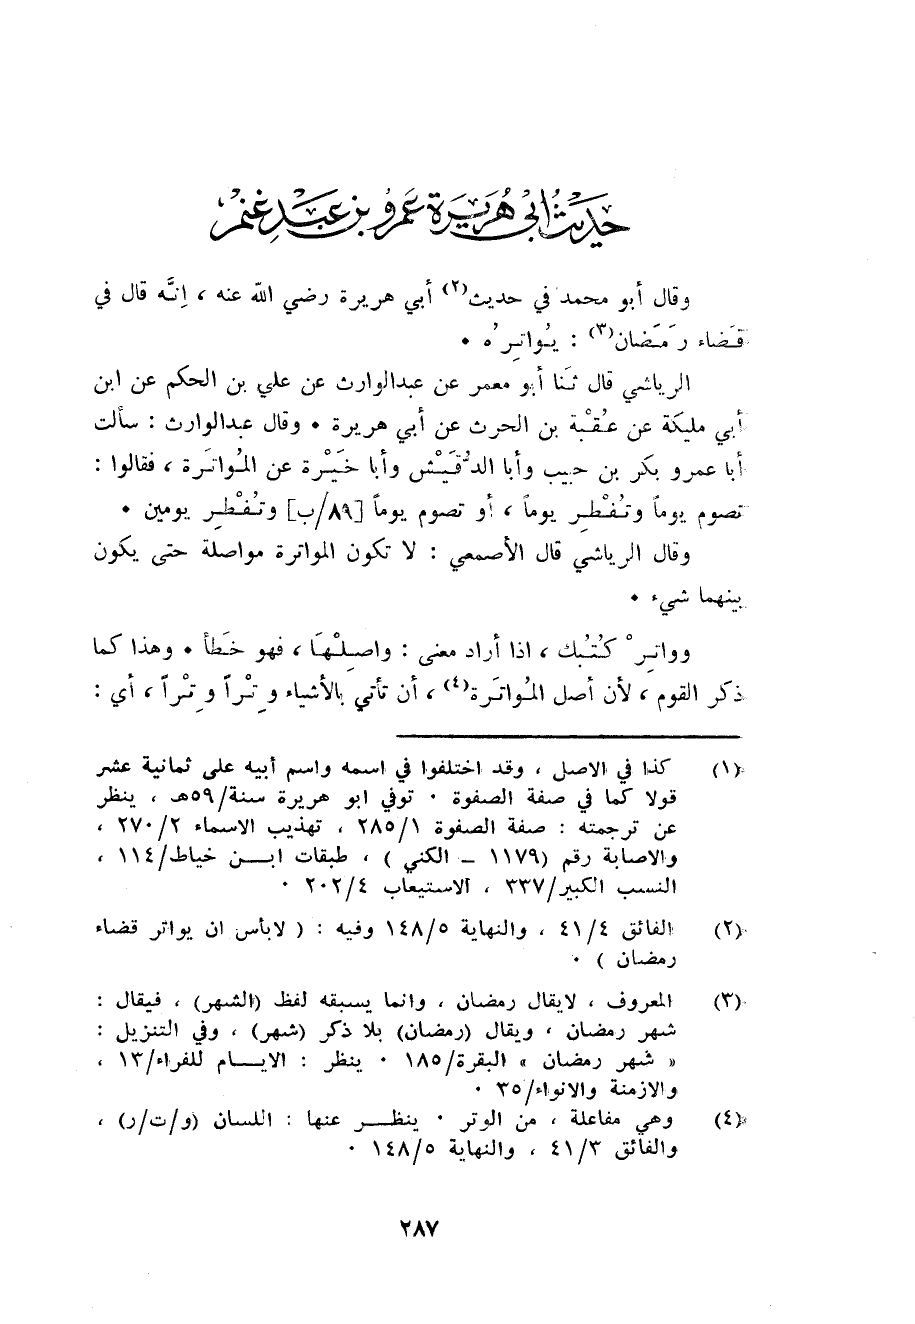 حديث أبي هُرَيرَة عَمرو بن عبد غنم
وقال أبو محمد في حديث(٢) أبي هريرة رضي الله عنه ، اِنَّه قال في
قَضاء رَمَضان(٣) : يُواتِرُه ٠
الرياشي قال ثَنا أبو معمر عن عبدالوارث عن علي بن الحكم عن ابن
أبي مليكة عن عُقْبة بن الحرث عن أبي هريرة ٠ وقال عبدالوارث : سألت
أبا عمرو بكر بن حبيب وأبا الدُّقَيْش وأبا خَيْرة عن المُواتَرة ، فقالوا :
تصوم يوماً وتُفْطِر يوماً ، أو تصوم يوماً [٨٩/ب] وتُفْطِر يومين ٠
وقال الرياشي قال الأصمعي : لا تكون المواترة مواصلة حتى يكون
بينهما شيء ٠
وواتِرْ كُتُبك ، اذا أراد معنى : واصِلْهَا ، فهو خَطأ ٠ وهذا كما
ذكر القوم ، لأن أصل المُواتَرة(٤) ، أن تأتي بالأشياء وِتْراً وِتْراً ، أي :
(١) كذا في الاصل ، وقد اختلفوا في اسمه واسم أبيه على ثمانية عشر
قولا كما في صفة الصفوة ٠ توفي ابو هريرة سنة/٥٩هـ ، ينظر
عن ترجمته : صفة الصفوة ٢٨٥/١ ، تهذيب الاسماء ٢٧٠/٢ ،
والاصابة رقم (١١٧٩ – الكني ) ، طبقات ابن خياط/١١٤ ،
النسب الكبير/٣٣٧ ، الاستيعاب ٢٠٢/٤ ٠
(٢) الفائق ٤١/٤ ، والنهاية ١٤٨/٥ وفيه : ( لابأس ان يواتر قضاء
رمضان ) ٠
(٣) المعروف ، لايقال رمضان ، وانما يسبقه لفظ (الشهر) ، فيقال :
شهر رمضان ، ويقال (رمضان) بلا ذكر (شهر) ، وفي التنزيل :
« شهر رمضان » البقرة/١٨٥ ٠ ينظر : الايام للفراء/١٣ ،
والازمنة والانواء/٣٥ ٠
(٤) وهي مفاعلة ، من الوتر ٠ ينظر عنها : اللسان (و/ت/ر) ،
والفائق ٤١/٣ ، والنهاية ١٤٨/٥ ٠
٢٨٧